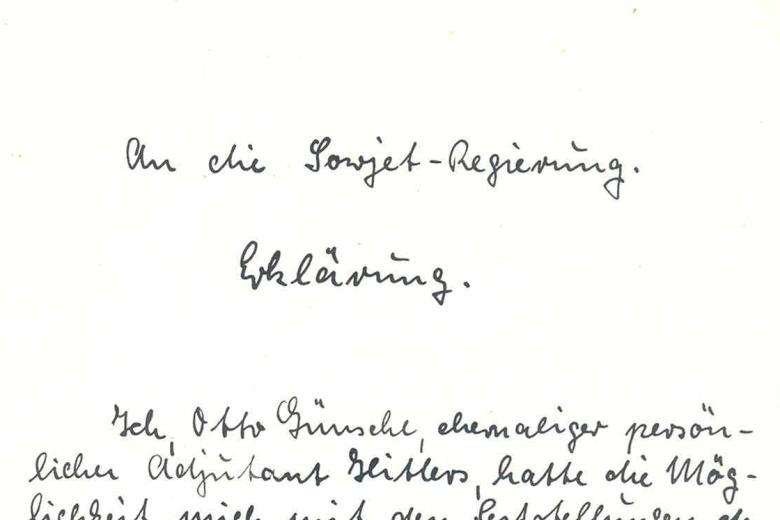 An die Sowjet-Regierung.
Erklärung.
Ich, Otto Günsche, ehemaliger persön-
licher Adjutant Hitlers, hatte die Mög-
lichkeit mich mit den Feststellungen